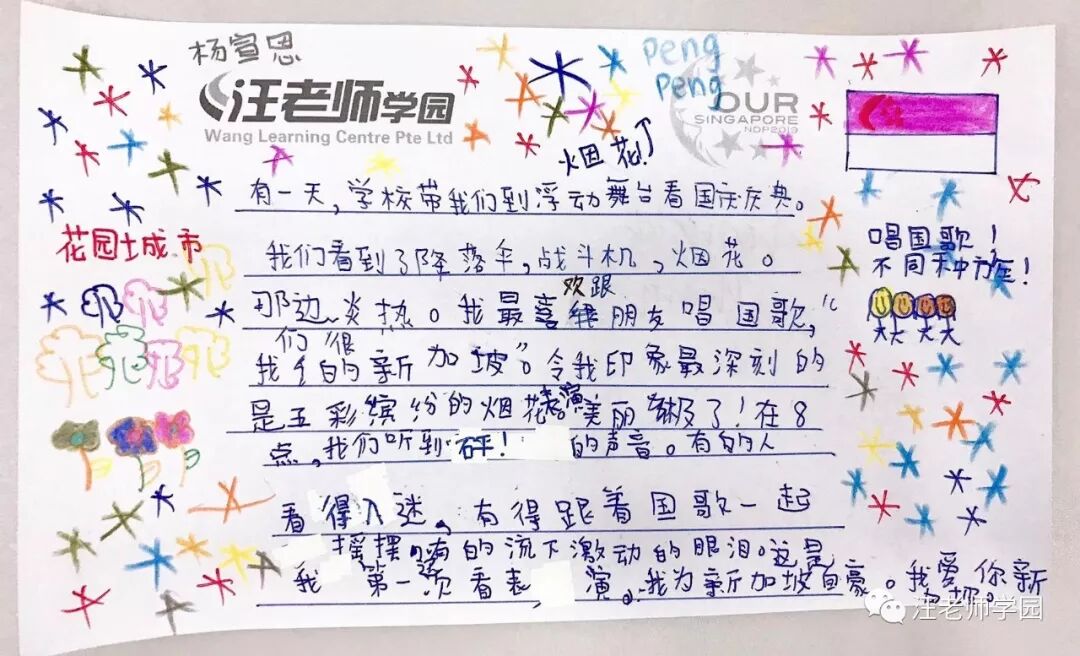 杨宣恩
Peng
Peng
汪老师学园
Wang Learning Centre Pte Ltd
OUR
SINGAPORE
NDP2019
烟花!
有一天，学校带我们到浮动舞台看国庆庆典。
花园城市
唱国歌！
不同种族！
我们看到了降落伞，战斗机，烟花。
欢跟
那边炎热。我最喜 朋友唱国歌，“
们“很
我 的新加坡”。令我印象最深刻的
表演
是五彩缤纷的烟花 美丽极了！在8
点，我们听到“砰！ 的声音。有的人
看得入迷，有得跟着国歌一起
摇摆 有的流下激动的眼泪。这是
我第一次看表演。我为新加坡自豪。我爱你新
加坡。
汪老师学园